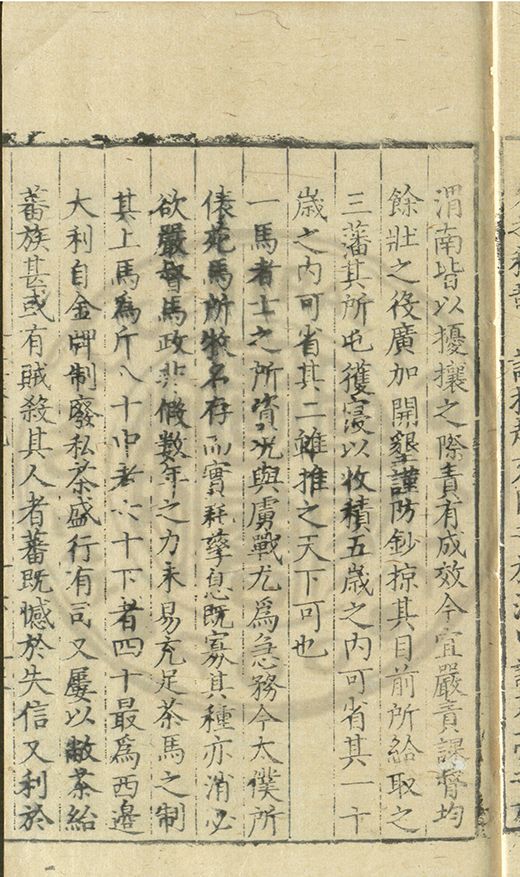 渭南皆以擾攘之際責有成效今宜嚴責課督均
餘壯之役廣加開墾謹防鈔掠其目前所給取之
三藩其所屯穫寖以收積五歲之内可省其一十
歲之内可省其二雖推之天下可也
一馬者士之所資況與虜戰尤爲急務今太僕所
俵苑馬所牧名存而實耗孳息既寡其種亦消必
欲嚴督馬政非假數年之力未易充足茶馬之制
其上馬爲斤八十中者六十下者四十最爲西邊
大利自金牌制廢私茶盛行有司又屢以敝茶給
蕃族甚或有賊殺其人者蕃既憾於失信又利於